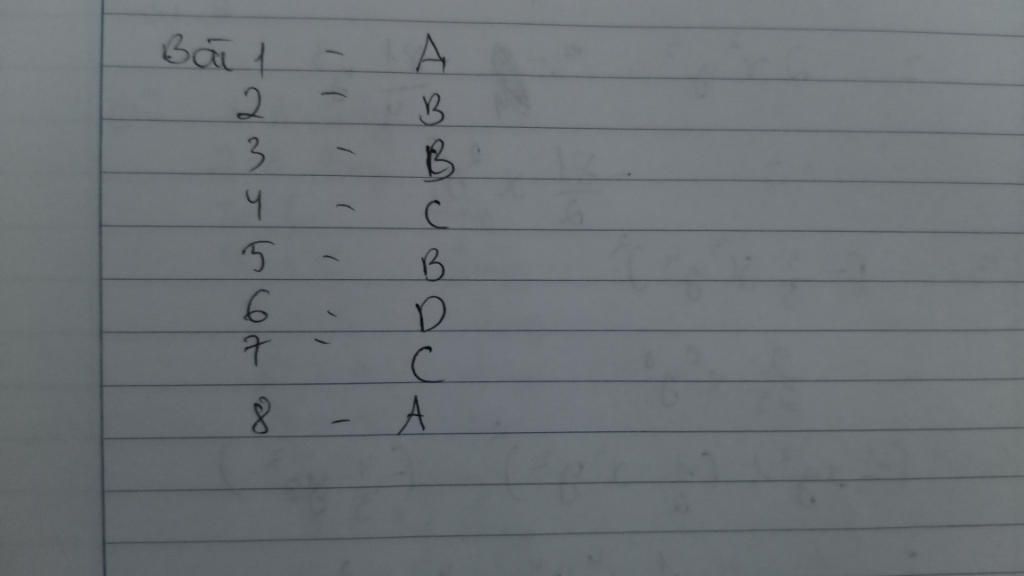 Bài 1 - A
2 - B
3 - B
4 - C
5 - B
6 - D
7 - C
8 - A